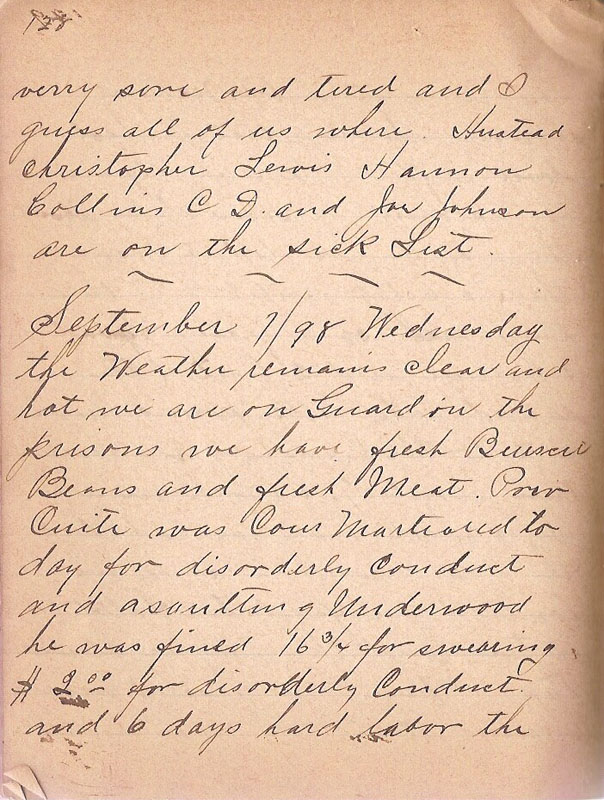 138
verry sore and tired and I
guess all of us where. Hustead
Christopher Lewis Hannon
Collins C D. and Joe Johnson
are on the sick List.
September 7/98 Wednesday
the Weather remains clear and
hot we are on Guard in the
prisons we have fresh
Beans and fresh Meat. Priv
was Cour Marteared to
day for disorderly Conduct
and asaulting Underwood
he was fined 16 3/4 for swearing
$ 2.00 for disorderly Conduct
and 6 days hard labor the